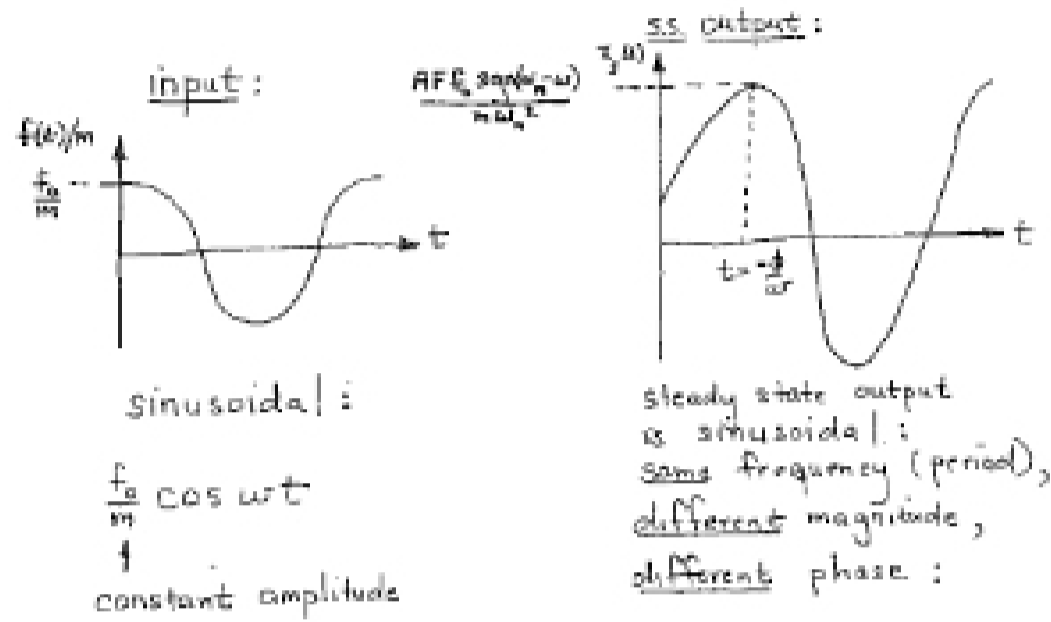 input :
f(t)/m
f₀/m
t
sinusoidal :
f₀/m cos ωt
constant amplitude
s.s. output :
AF f₀ sgn(ωₙ-ω)
mωₙ²
t
steady state output
is sinusoidal :
same frequency (period),
different magnitude,
different phase :